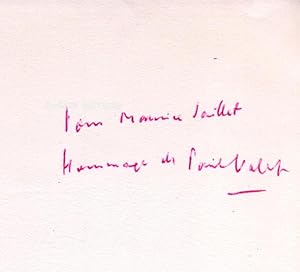 Pour Maurice Saillet
Hommage de Paul Valet